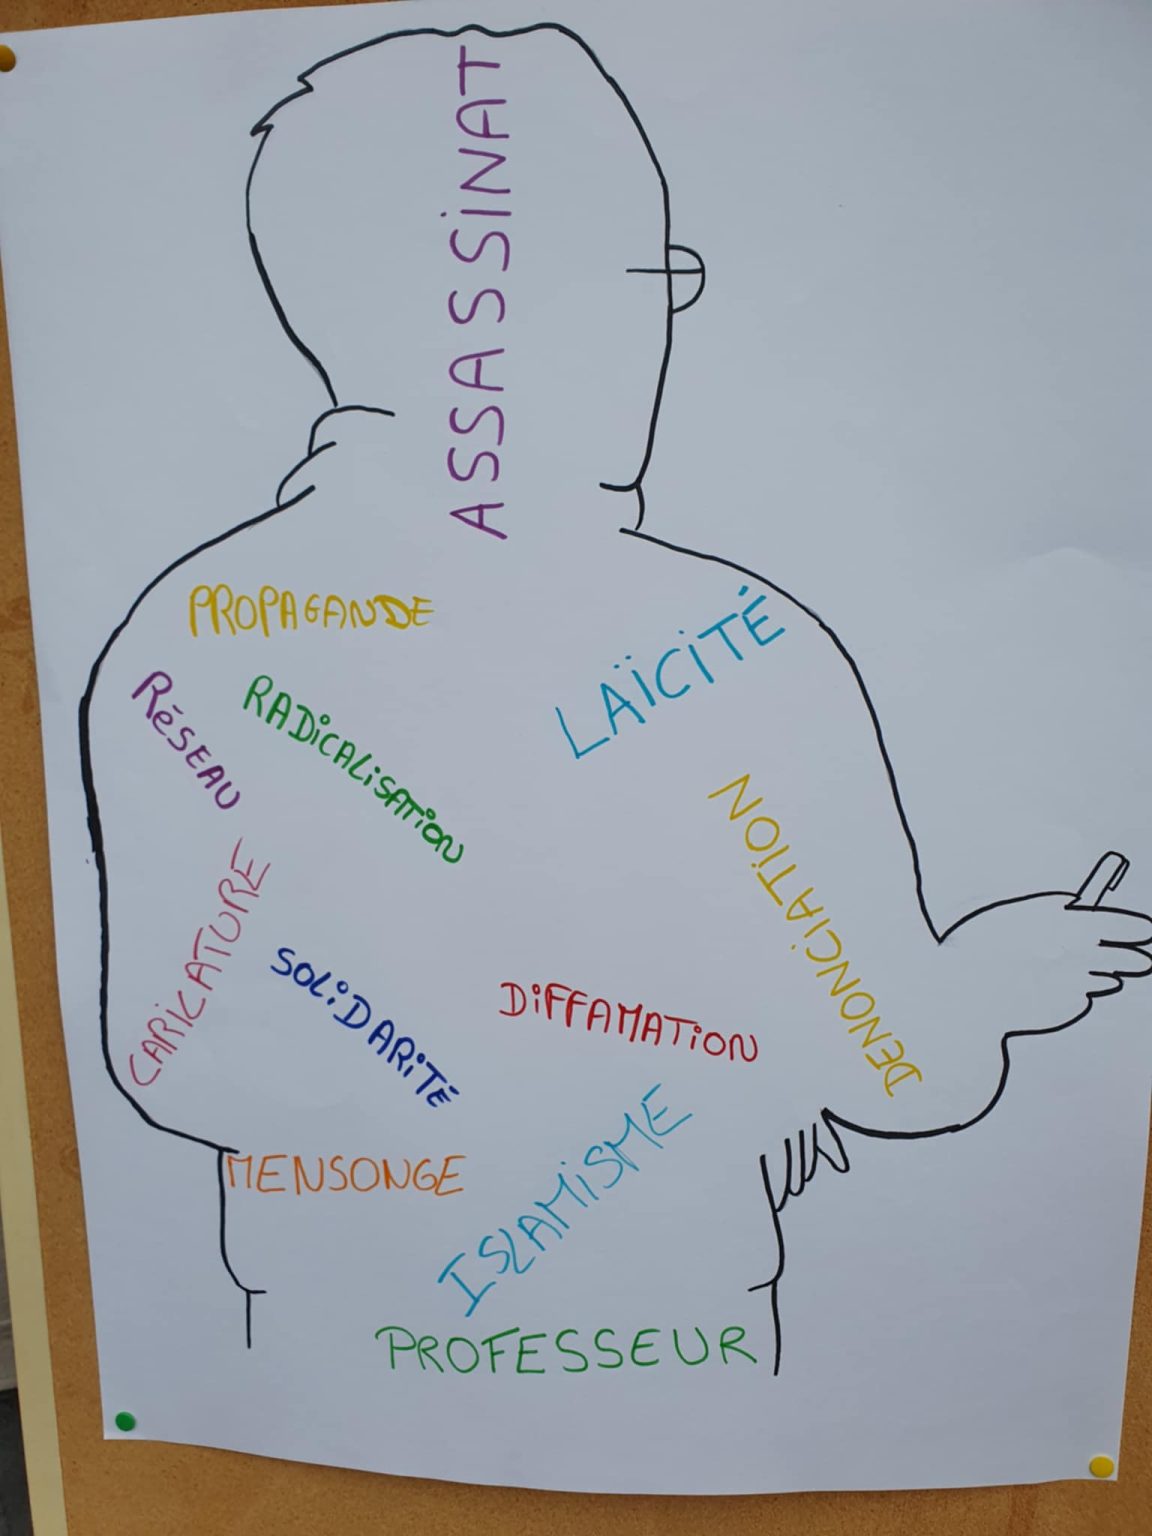 ASSASSINAT
PROPAGANDE
LAÏCITÉ
RÉSEAU
RADICALISATION
DENONCIATION
CARICATURE
SOLIDARITÉ
DIFFAMATION
MENSONGE
ISLAMISME
PROFESSEUR